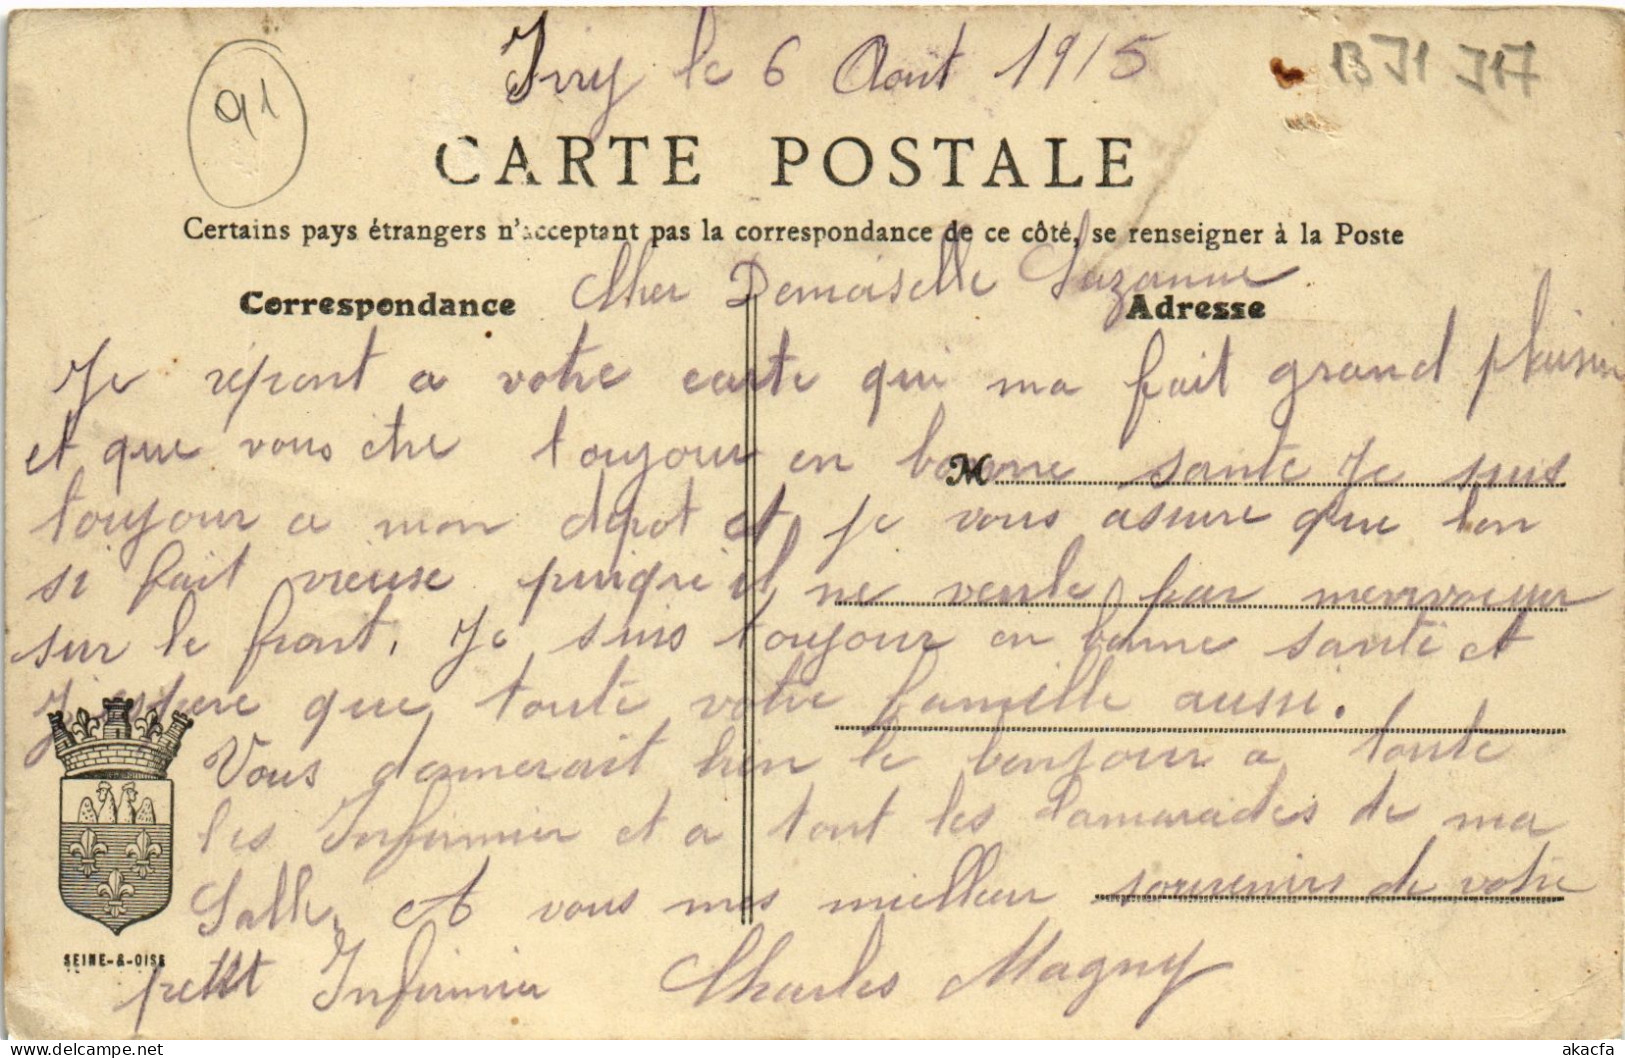 Ivry le 6 Aout 1915
91
13 J1 J17
CARTE POSTALE
Certains pays étrangers n'acceptent pas la correspondance de ce côté, se renseigner à la Poste
Correspondance
Adresse
Cher Demoiselle Suzanne
Je répont a votre carte qui ma fait grand plaisir
et que vous etre toujour en bonne sante Je suis
M
toujour a mon depot et je vous assure que lon
si fait vieuse puisqu'il ne veule pas menvoyer
sur le front. Je suis toujour en bonne santé et
J'espere que toute votre famille aussi.
Vous donnerait bien le bonjour a toute
les Infirmier et a tout les Camarades de ma
Salle, et vous mes meilleur souvenirs de votre
petit Infirmier Charles Magny
SEINE-&-OISE
akacfa